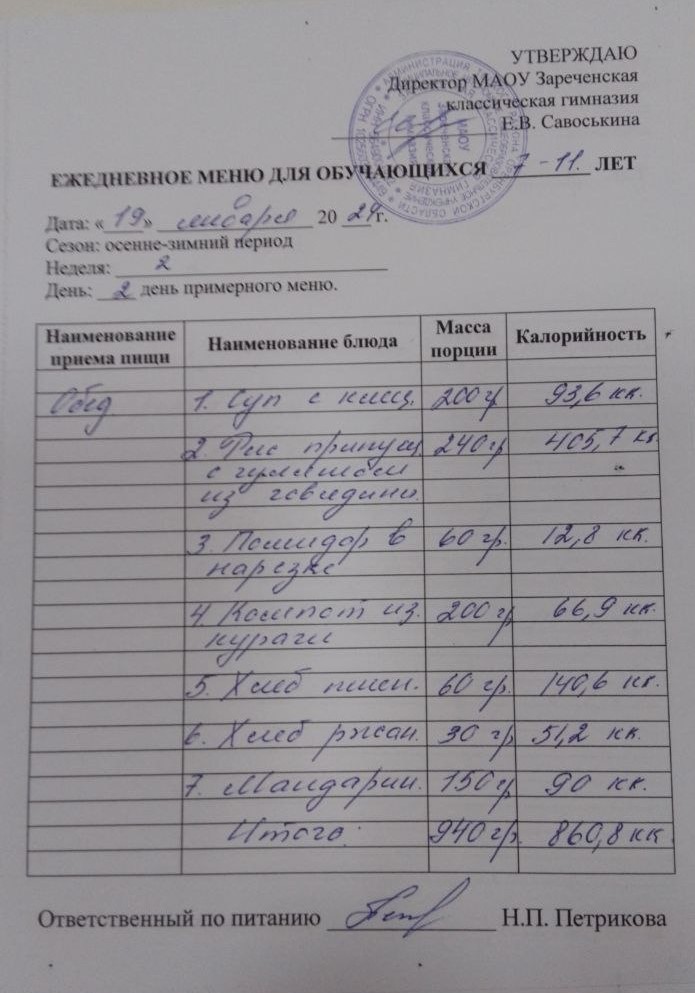 УТВЕРЖДАЮ
Директор МАОУ Зареченская
классическая гимназия
Е.В. Савоськина
ЕЖЕДНЕВНОЕ МЕНЮ ДЛЯ ОБУЧАЮЩИХСЯ 7-11. ЛЕТ
Дата: «19» января 2024г.
Сезон: осенне-зимний период
Неделя: 2
День: 2 день примерного меню.
Наименование приема пищи Наименование блюда Масса порции Калорийность
Обед 1. Суп с клец. 200гр 93,6 кк.
2. Рис припущ 240гр 405,7 кк
с гуляшом
из говядины.
3. Помидор в 60 гр. 12,8 кк.
нарезке
4 Компот из. 200 гр 66,9 кк.
кураги
5. Хлеб пшен. 60 гр. 140,6 кк.
6. Хлеб ржан. 30 гр 51,2 кк.
7. Мандарин. 150гр 90 кк.
Итого: 940гр. 860,8 кк
Ответственный по питанию Н.П. Петрикова